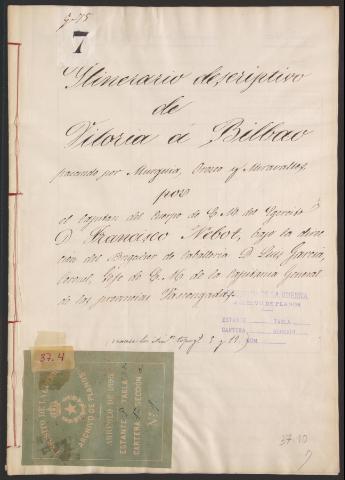 g-75
7
Itinerario descriptivo
de
Vitoria á Bilbao
pasando por Murguia, Orozco y Miravalles,
por
el Capitan del Cuerpo de E. M. del Ejercito
D. Francisco Nebot, bajo la direc
cion del Brigadier de Caballería D. Luis Garcia,
Coronel, Gefe de E. M. de la Capitanía General
de las provincias Vascongadas.
DE LA GUERRA
ARCHIVO DE PLANOS
ESTANTE TABLA
CARTERA NUM
y 19.
37.4
DEPÓSITO DE LA GUERRA
ARCHIVO DE PLANOS
ARREGLO DE
ESTANTE TABLA
CARTERA SECCION
N.º
37.10